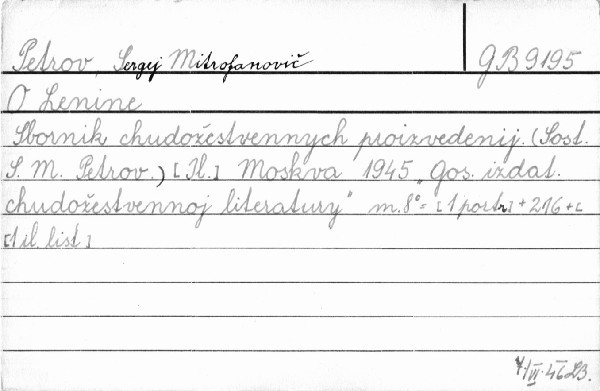 Petrov, Sergej Mitrofanovič GB 9195
O Lenine
Sbornik chudožestvennych proizvedenij. (Sost.
S. M. Petrov.) [Il.] Moskva 1945 "Gos. izdat.
chudožestvennoj literatury" m.8° = [1 portr] + 216 + [
[1 il. list]